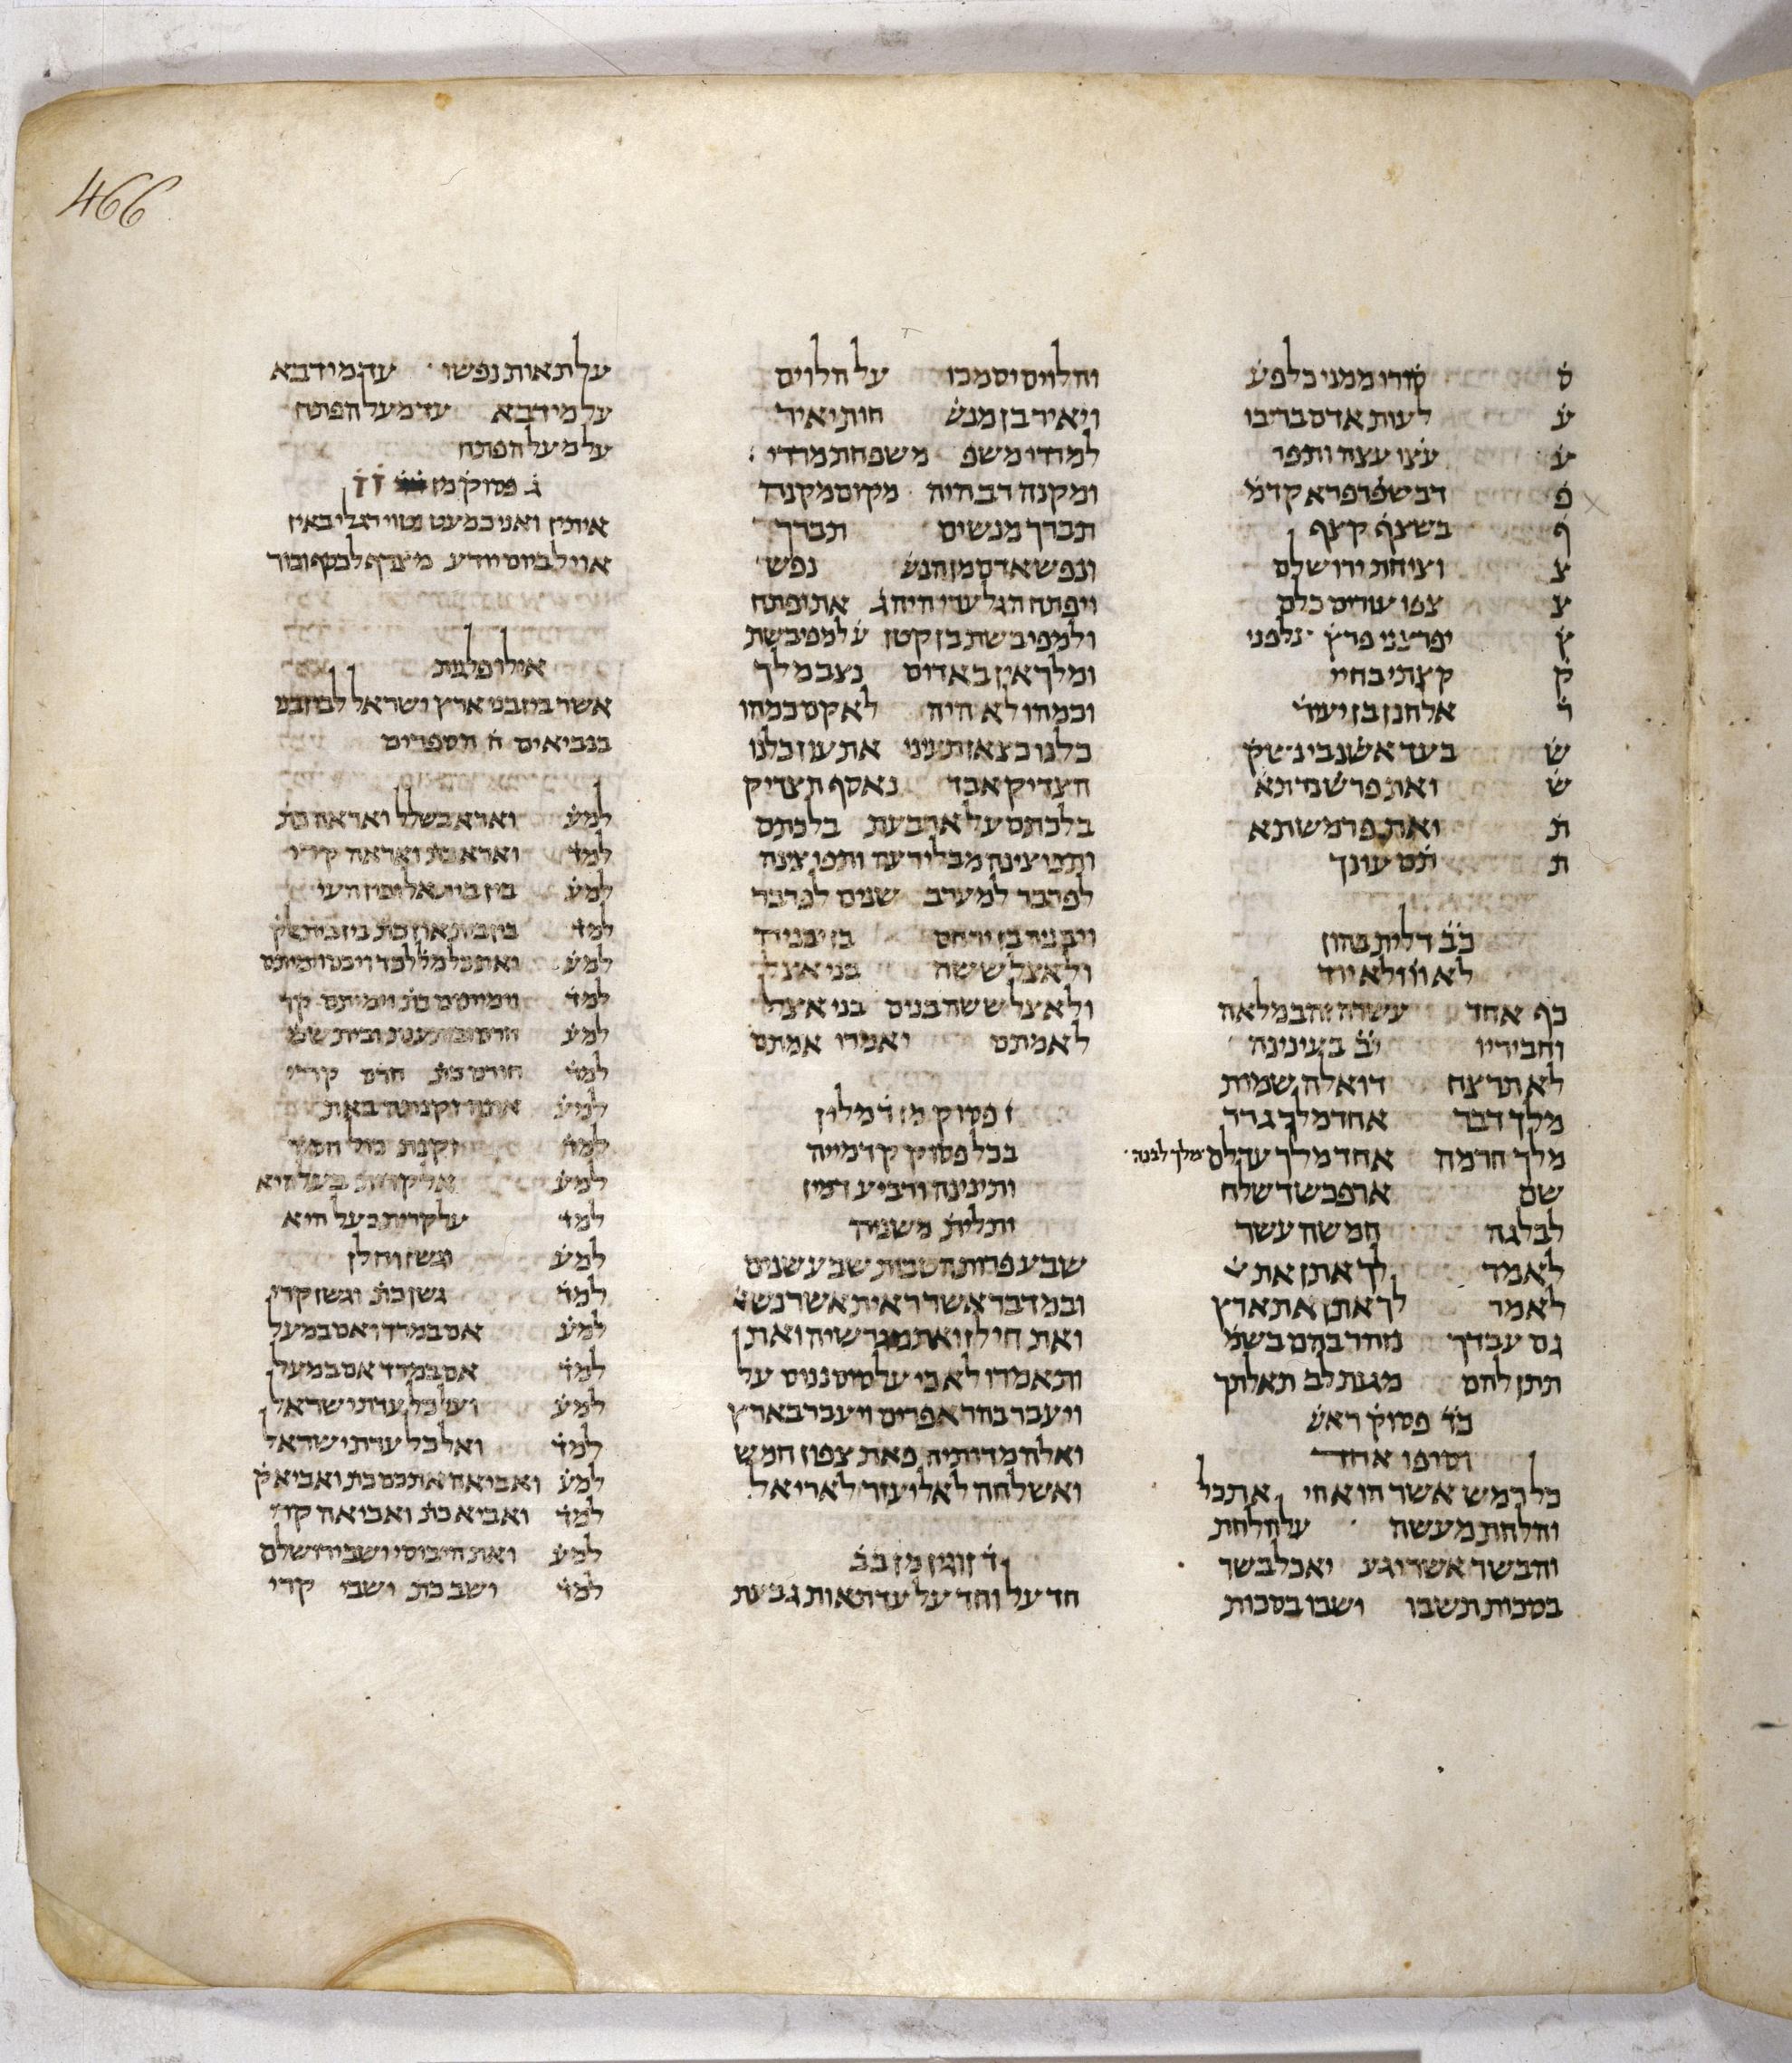 466
ס סורו ממני כל פע
ע לעות אדם בריבו
ע עצו עצה ותפר
פ דבשפרפרא קדמ
ף בשצף קצף
צ וציחת ירושלם
צ צפו עורים כלם
ץ יפרצני פרץ על פני
ק קצתי בחיי
ר אלחנן בן יעור
ש בעד אשנבי נשק
ש ואת פרשנדתא
ת ואת פרמשתא
ת תם עונך
כב דלית בהון
לא וו ולא יוד
כף אחד עשרה זהב מלאה
וחביריו יב בעינינה
לא תרצח דואלה שמות
מלך דבר אחד מלך גדר
מלך חרמה אחד מלך עדלם מלך לבנה
שם ארפכשד שלח
לבלגה חמשה עשר
לאמר לך אתן את
לאמר לך אתן את ארץ
גם עבדך נזהר בהם בשמ
תתן להם מגנת לב תאלתך
כד פסוק ראש
וסופו אחד
כל רמש אשר הוא חי את כל
והלחת מעשה על הלחת
והבשר אשר יגע יאכל בשר
בסכות תשבו ישבו בסכות
והלוים יסמכו על הלוים
ויאיר בן מנש חות יאיר
למררי משפ משפחת מררי
ומקנה רב היה מקום מקנה
תברך מנשים תברך
ונפש אדם מן הנש נפש
ויפתח הגלעדי היה ג את יפתח
ולמפיבשת בן קטן על מפיבשת
ומלך אין באדום נצב מלך
וכמהו לא היה לא קם כמהו
כלנו כצאן תעינו את עון כלנו
הצדיק אבד נאסף הצדיק
בלכתם על ארבעת בלכתם
ותפוצינה מבלי רעה ותפוצינה
לפרבר למערב שנים לפרבר
ויבניה בן ירחם בן יבניה
ולאצל ששה בני אצל
ולאצל ששה בנים בני אצל
לאמתם ואמרו אמתם
ז פסוק מן ד מלין
בכל פסוק קדמייה
ותינינה ורביע דמין
ותלית משניה
שבע פרות הטבות שבע שנים
ובמדבר אשר ראית אשר נשא
ואת חילן ואת מגרשיה ואת
ותאמרו לא כי על סוס ננוס על
ויעבר בהר אפרים ויעבר בארץ
ואלה מדותיה פאת צפון חמש
ואשלחה לאליעזר לאריאל
ד זוגין מן בב
חד על וחד על עד תאות גבעת
על תאות נפשו עד מידבא
על מידבא עד מעל הפתח
על מעל הפתח
ג פסוק מן ז ז
איתין ואני כמעט נטוי רגלי באין
אויל ביום יודע מצרף לכסף וכור
אילו פלגת
אשר בין בני ארץ ישראל לבין בני
בנביאים ח הספרים
למע וארא בשלל ואראה כת
למד וארא כת ואראה קרי
למע בין בית אל ובין העי
למד בין בית און כת בין בית אל ק
למע ואת כל מלכד ויכם וימיתם
למד וימיתם כת וימיתם קר
למע
למד חורם כת חרם קרי
למע
למד
למע אל קרית בעל היא
למד על קרית בעל היא
למע וגשן וחלן
למד גשן כת וגשן קרי
למע אם במרד ואם במעל
למד אם במרד אם במעל
למע ועל כל עדת ישראל
למד ואל כל עדת ישראל
למע ואביאה אתכם כת ואביא ק
למד ואביא כת ואביאה קרי
למע ואת היבוסי ישבי ירושלם
למד ישב כת ישבי קרי